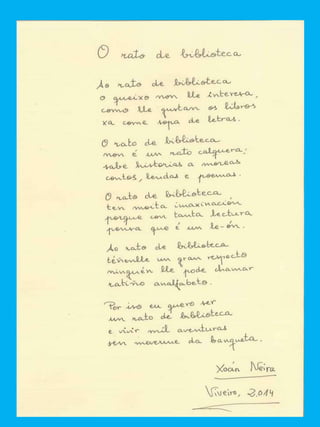 O rato de biblioteca
Ao rato de biblioteca
o queixo non lle interesa,
como lle gustan os libros
xa come sopa de letras.
O rato de biblioteca
non é un rato calquera;
sabe historias a moreas
contos, lendas e poemas.
O rato de biblioteca
ten moita imaxinación,
porque con tanta lectura
pensa que é un le-ón.
Ao rato de biblioteca
téñenlle un gran respecto
ninguén lle pode chamar
ratiño analfabeto.
Por iso eu quero ser
un rato de biblioteca
e vivir mil aventuras
sen moverme da banqueta.
Xoán Neira
Viveiro, 2.014